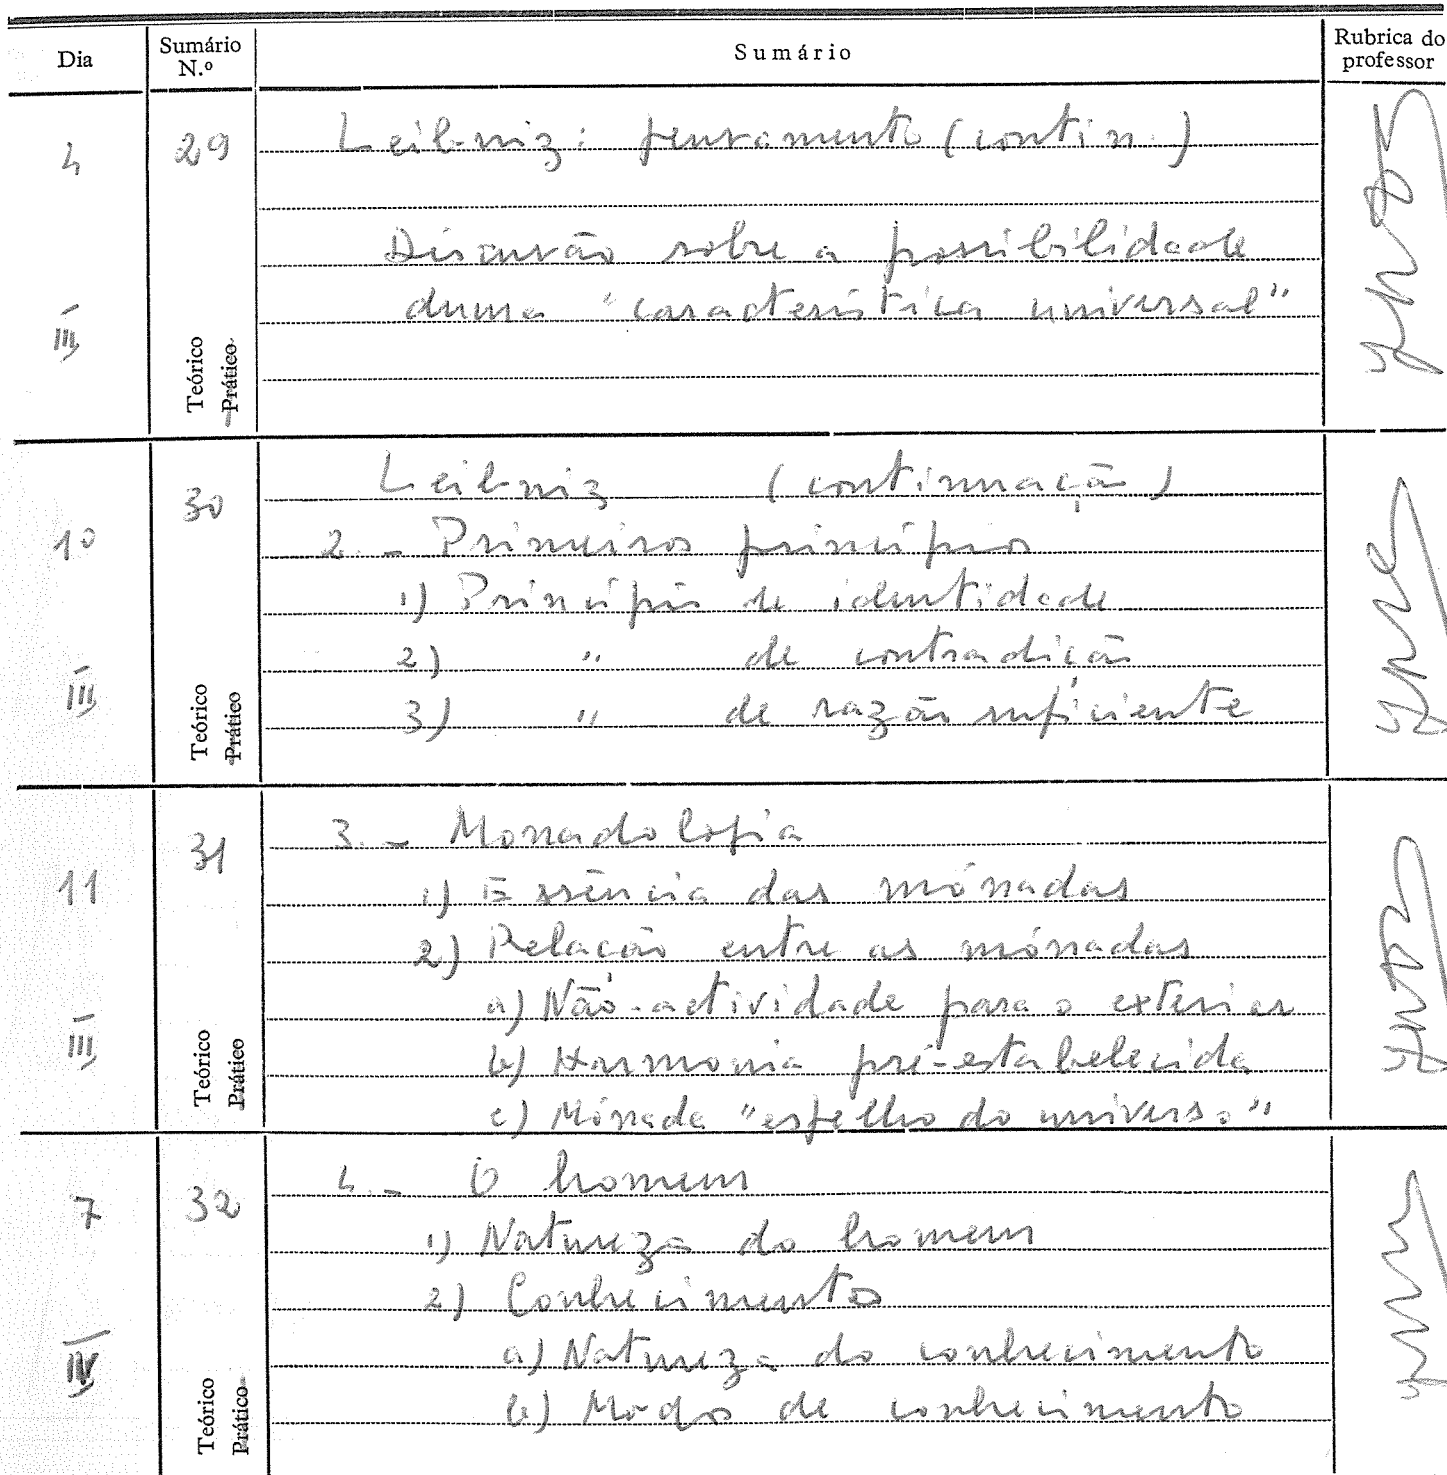 Dia
Sumário N.º
Sumário
Rubrica do professor
4
III
29
Teórico
Prático
Leibniz: pensamento (contin.)
Discussão sobre a possibilidade
duma "característica universal"
10
III
30
Teórico
Prático
Leibniz (continuação)
2.- Primeiros princípios
1) Princípio de identidade
2) " de contradição
3) " de razão suficiente
11
III
31
Teórico
Prático
3.- Monadologia
1) Essência das mónadas
2) Relação entre as mónadas
a) Não-actividade para o exterior
b) Harmonia pré-estabelecida
c) Mónada "espelho do universo"
7
IV
32
Teórico
Prático
4.- O homem
1) Natureza do homem
2) Conhecimento
a) Natureza do conhecimento
b) Modos de conhecimento